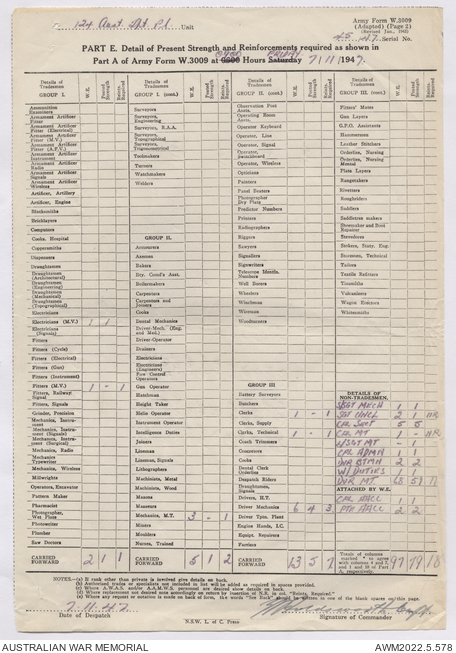 124 Aust Spt Pl Unit
Army Form W.3009
(Adapted) (Page 2)
(Revised Jan., 1945)
45/47 Serial No.
PART E. Detail of Present Strength and Reinforcements required as shown in
Part A of Army Form W.3009 at 0600 Hours Saturday FRIDAY 7/11/1947.
Details of Tradesmen
GROUP I.
W.E.
Posted Strength
Reints. Required
Ammunition Examiners
Armament Artificer Fitter
Armament Artificer Fitter (Electrical)
Armament Artificer Fitter (M.V.)
Armament Artificer Fitter (A.F.V.)
Armament Artificer Instrument
Armament Artificer Radio
Armament Artificer Signals
Armament Artificer Wireless
Artificer, Artillery
Artificer, Engine
Blacksmiths
Bricklayers
Computers
Cooks, Hospital
Coppersmiths
Dispensers
Draughtsmen
Draughtsmen (Architectural)
Draughtsmen (Engineering)
Draughtsmen (Mechanical)
Draughtsmen (Topographical)
Electricians
Electricians (M.V.) 1 1
Electricians (Signals)
Fitters
Fitters (Cycle)
Fitters (Electrical)
Fitters (Gun)
Fitters (Instrument)
Fitters (M.V.) 1 - 1
Fitters, Railway Signal
Fitters, Signals
Grinder, Precision
Mechanics, Instrument
Mechanics, Instrument (Signals)
Mechanics, Instrument (Surgical)
Mechanics, Radio
Mechanics, Typewriter
Mechanics, Wireless
Millwrights
Operators, Excavator
Pattern Maker
Pharmacist
Photographer, Wet Plate
Photowriter
Plumber
Saw Doctors
CARRIED FORWARD 2 1 1
Details of Tradesmen
GROUP I. (cont.)
W.E.
Posted Strength
Reints. Required
Surveyors
Surveyors, Engineering
Surveyors, R.A.A.
Surveyors, Topographical
Surveyors, Trigonometrical
Toolmakers
Turners
Watchmakers
Welders
GROUP II.
Armourers
Axemen
Bakers
Bty. Comd's Asst.
Boilermakers
Carpenters
Carpenters and Joiners
Cooks
Dental Mechanics
Driver-Mech. (Eng. and Med.)
Driver-Operator
Drainers
Electricians
Electricians (Engineers)
Fire Control Operators
Gun Operator
Hatchman
Height Taker
Hoist Operator
Instrument Operator
Intelligence Duties
Joiners
Linesmen
Linesman, Signals
Lithographers
Machinists, Metal
Machinists, Wood
Masons
Masseurs
Mechanics, M.T. 3 - 1
Miners
Moulders
Nurses, Trained
CARRIED FORWARD 5 1 2
Details of Tradesmen
GROUP II. (cont.)
W.E.
Posted Strength
Reints. Required
Observation Post Assts.
Operating Room Assts.
Operator Keyboard
Operator, Line
Operator, Signal
Operator, Switchboard
Operator, Wireless
Opticians
Painters
Panel Beaters
Photographer Dry Plate
Predictor Numbers
Printers
Radiographers
Riggers
Sawyers
Signallers
Signwriters
Telescope Identfn. Numbers
Wall Borers
Wheelers
Winchman
Wireman
Woodturners
GROUP III
Battery Surveyors
Butchers
Clerks 1 - 1
Clerks, Supply
Clerks, Technical 1 - 1
Coach Trimmers
Concretors
Cooks
Dental Clerk Orderlies
Despatch Riders
Draughtsmen, Signals
Drivers, H.T.
Driver Mechanics 6 4 3
Driver Tptn. Plant
Engine Hands, I.C.
Equipt. Repairers
Farriers
CARRIED FORWARD 13 5 7
Details of Tradesmen
GROUP III. (cont.)
W.E.
Posted Strength
Reints. Required
Fitters' Mates
Gun Layers
G.P.O. Assistants
Hammermen
Leather Stitchers
Orderlies, Nursing
Orderlies, Nursing Mental
Plate Layers
Rangetakers
Riveters
Roughriders
Saddlers
Saddletree makers
Shoemaker and Boot Repairer
Stevedores
Stokers, Staty. Eng.
Storemen, Technical
Tailors
Textile Refitters
Tinsmiths
Vulcanizers
Wagon Erectors
Whitesmiths
DETAILS OF NON-TRADESMEN.
SSGT MECH 1 1
SGT VHCL 2 1 NR
CPL SECT 5 5
CPL MT 1 - NR
L/SGT MT - - 1
CPL ADMN 1 1
DVR BTMN 2 2
W/ DUTIES 1 1
DVR MT 68 51 11
ATTACHED BY W.E.
CPL AACC 1 1
PTE AACC 2 2
Totals of columns marked * to agree with columns 4 and 7, and 5 and 10 of Part A, respectively. 97 79 18
NOTES.—(a) If rank other than private is involved give details on back.
(b) Authorized trades or specialists not included in list will be added as required in spaces provided.
(c) Where A.W.A.S. and/or A.A.M.W.S. personnel are desired show details on back.
(d) Where replacement not desired note accordingly on return by insertion of N.R. in col. "Reints. Required."
7.11.47
Date of Despatch
Signature of Commander
N.S.W. L. of C. Press
AUSTRALIAN WAR MEMORIAL
AWM2022.5.578